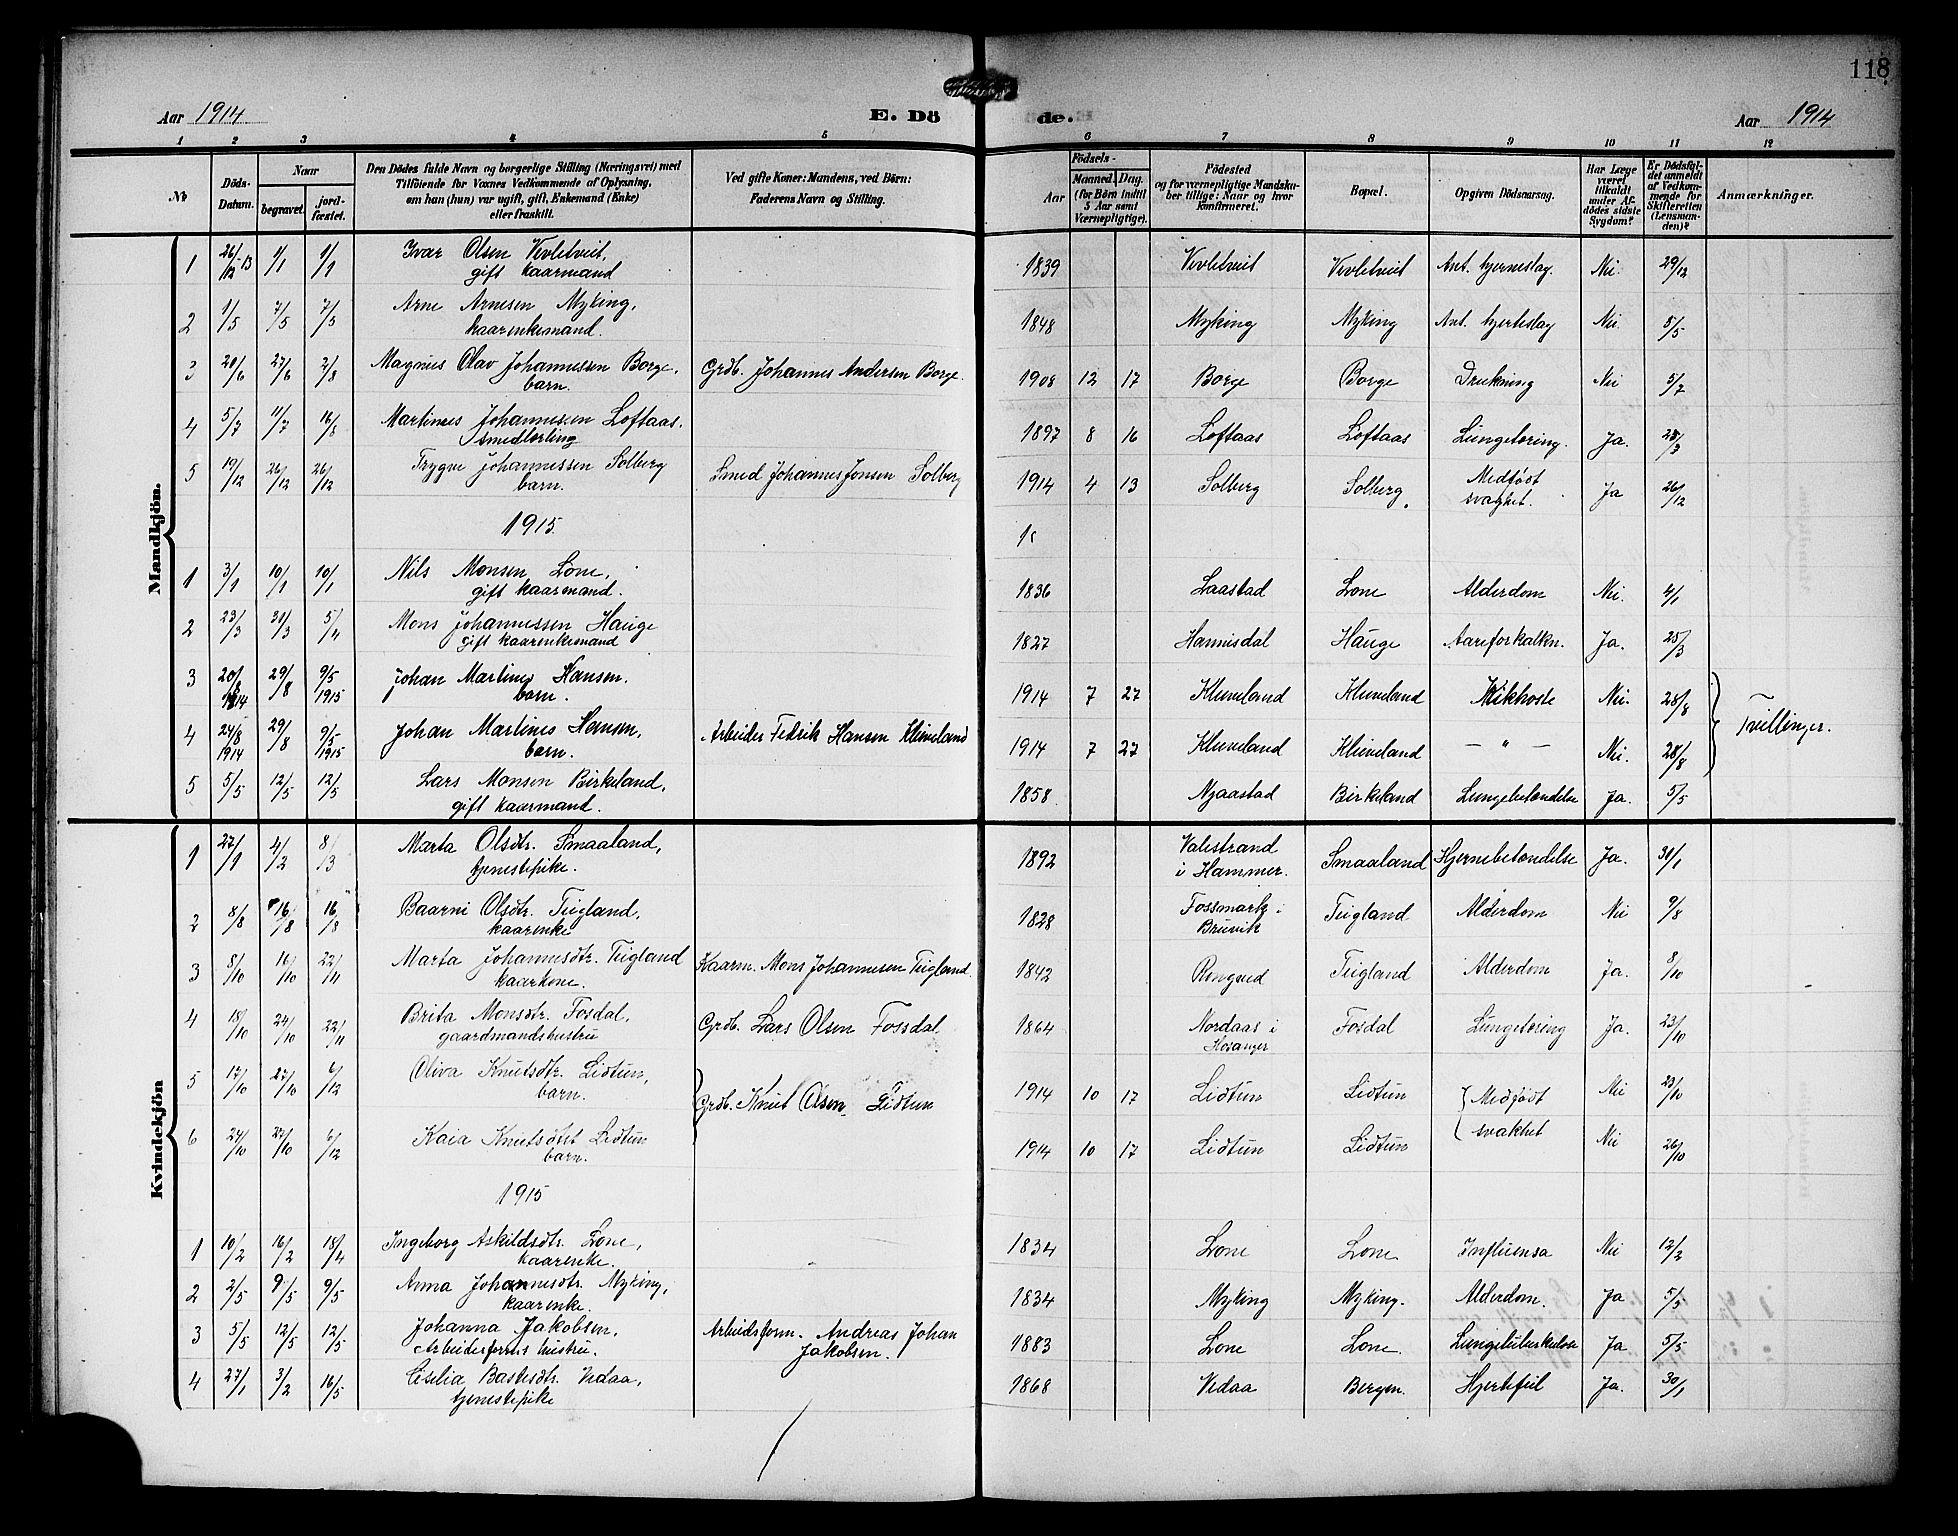 118
Aar 1914
E. Dö
de.
Aar 1914
1 2 3 4 5 6 7 8 9 10 11 12
No
Döds-Datum.
Naar
begravet.
jord-fæstet.
Den Dödes fulde Navn og borgerlige Stilling (Næringsvei) med
Tilföiende for Voxnes Vedkommende af Oplysning,
om han (hun) var ugift, gift, Enkemand (Enke)
eller fraskilt.
Ved gifte Koner: Mandens, ved Börn:
Faderens Navn og Stilling.
Födsels-
Aar
Maaned. Dag.
(for Börn indtil
5 Aar samt
Værnepligtige).
Födested
og for værnepligtige Mandska-
ber tillige: Naar og hvor
konfirmeret.
Bopæl.
Opgiven Dödsaarsag.
Har Læge
været
tilkaldt
under Af-
dödes sidste
Sygdom?
Er Dödsfal-
det anmeldt
af Vedkom-
mende for
Skifteretten
(Lensman-
den)?
Anmærkninger.
Mandkjön.
1 26/12-13 1/1 1/1 Ivar Olsen Vevletveit, 1839 Vevletveit Vevletveit Ant. hjerneslag. Nei. 29/12
gift kaarmand
2 1/5 7/5 7/5 Arne Arnesen Myking, 1848 Myking Myking Ant. hjerteslag Nei. 5/5
kaarenkemand.
3 20/6 27/6 2/8 Magnus Olav Johannessen Borge, Grdb. Johannes Andersen Borge. 1908 12 17 Borge Borge Drukning Nei 5/7
barn.
4 5/7 11/7 16/8 Martines Johannessen Loftaas. 1897 8 16 Loftaas Loftaas Lungetæring. Ja.
smedlærling
5 19/12 26/12 26/12 Trygve Johannessen Solberg Smed Johannes Jonsen Solberg 1914 4 13 Solberg Solberg. Medfødt svaghet. Ja 26/12
barn.
1915.
1 3/1 10/1 10/1 Nils Monsen Lone, 1836 Laastad Lone Alderdom Nei. 4/1
gift kaarmand.
2 23/3 31/3 5/4 Mons Johannessen Hauge 1827 Hannisdal Hauge Aareforkalkn. Ja. 25/3
gift kaarenkemand
3 20/8 1914 29/8 9/5 1915 Johan Martines Hansen. 1914 7 27 Kleiveland Kleiveland Kikhoste Nei. 28/8
barn.
Tvillinger.
4 24/8 1914 29/8 9/5 1915 Johan Martines Hansen, Arbeider Fedrik Hansen Kleiveland 1914 7 27 Kleiveland Kleiveland — " — Nei. 28/8
barn.
5 5/5 12/5 12/5 Lars Monsen Birkeland, 1858. Njaastad Birkeland Lungebetændelse Ja. 5/5
gift kaarmand.
Kvindekjön
1 27/1 4/2 8/3 Marta Olsdtr. Smaaland, 1892 Valestrand i Hammer. Smaaland Hjernebetændelse Ja. 30/1
tjenestepike.
2 8/8 16/8 16/8 Baarni Olsdtr. Teigland, 1828 Fossmark i Bruvik Teigland Alderdom Nei 9/8
kaarenke
3 8/10 16/10 22/11 Marta Johannesdtr. Teigland Kaarm. Mons Johannesen Teigland. 1842 Teigland Alderdom Ja. 8/10
kaarkone.
4 18/10 24/10 22/11 Brita Monsdtr. Fosdal, Grdb. Lars Olsen Fossdal 1864 Nordaas i Hosanger Fosdal Lungetæring Ja. 23/10
gaardmandshustru
5 17/10 27/10 6/12 Oliva Knutsdtr. Lidtun, Grdb. Knut Olsen Lidtun 1914 10 17 Lidtun Lidtun Medfødt svakhet Nei 23/10
barn.
6 24/10 27/10 6/12 Kaia Knutsdtr Lidtun 1914 10 17 Lidtun Lidtun Nei 26/10
barn.
1915
1 10/2 16/2 18/4 Ingeborg Askildsdtr. Lone, 1834 Lone Lone Influensa Nei 12/2
kaarenke.
2 2/5 9/5 9/5 Anna Johannesdtr. Myking, 1834 Myking Myking. Alderdom. Ja 5/5
kaarenke.
3 5/5 12/5 12/5 Johanna Jakobsen, Arbeidsform. Andreas Johan Jakobsen. 1883 Lone Lone. Lungetuberkulose Ja 5/5
Arbeidsforms hustru.
4 27/1 3/2 16/5 Cecilia Vedaa, 1868 Vedaa Bergen. Hjertefeil Ja. 30/1
tjenestepike